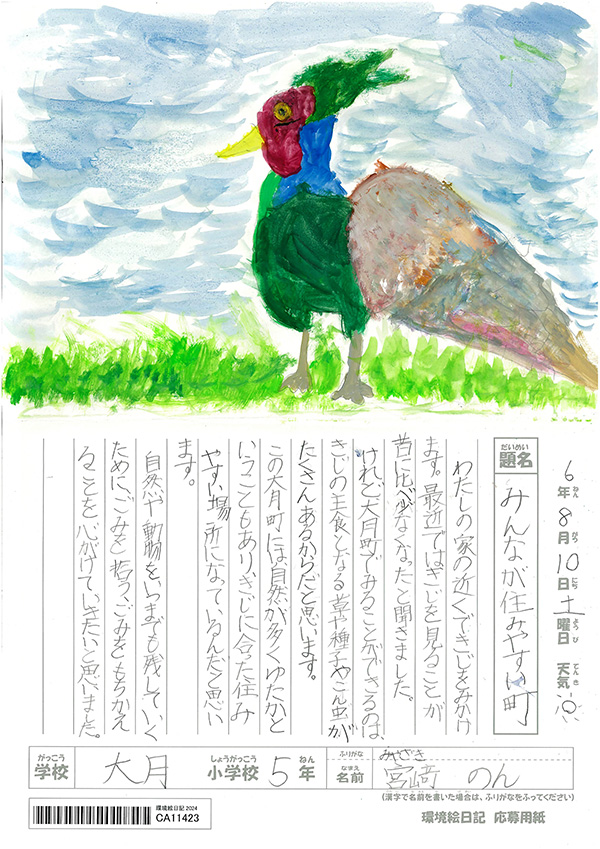 6年8月10日土曜日 天気
ねん がつ にち ようび てんき
だいめい
題名
みんなが住みやすい町
わたしの家の近くできじをみかけ
ます。最近ではきじを見ることが
昔に比べ少なくなったと聞きました。
けれど大月町でみることができるのは、
きじの主食となる草や種子やこん虫が
たくさんあるからだと思います。
この大月町には自然が多くゆたかと
いうこともあり、きじに合った住み
やすい場所になっているんだと思い
ます。
自然や動物をいつまでも残していく
ためにごみを拾う、ごみをもちかえ
ることを心がけていきたいと思いました。
がっこう
学校
大月
しょうがっこう
小学校
5年
ねん
ふりがな
みやざき
なまえ
名前
宮﨑 のん
(漢字で名前を書いた場合は、ふりがなをふってください)
環境絵日記 2024
CA11423
環境絵日記 応募用紙